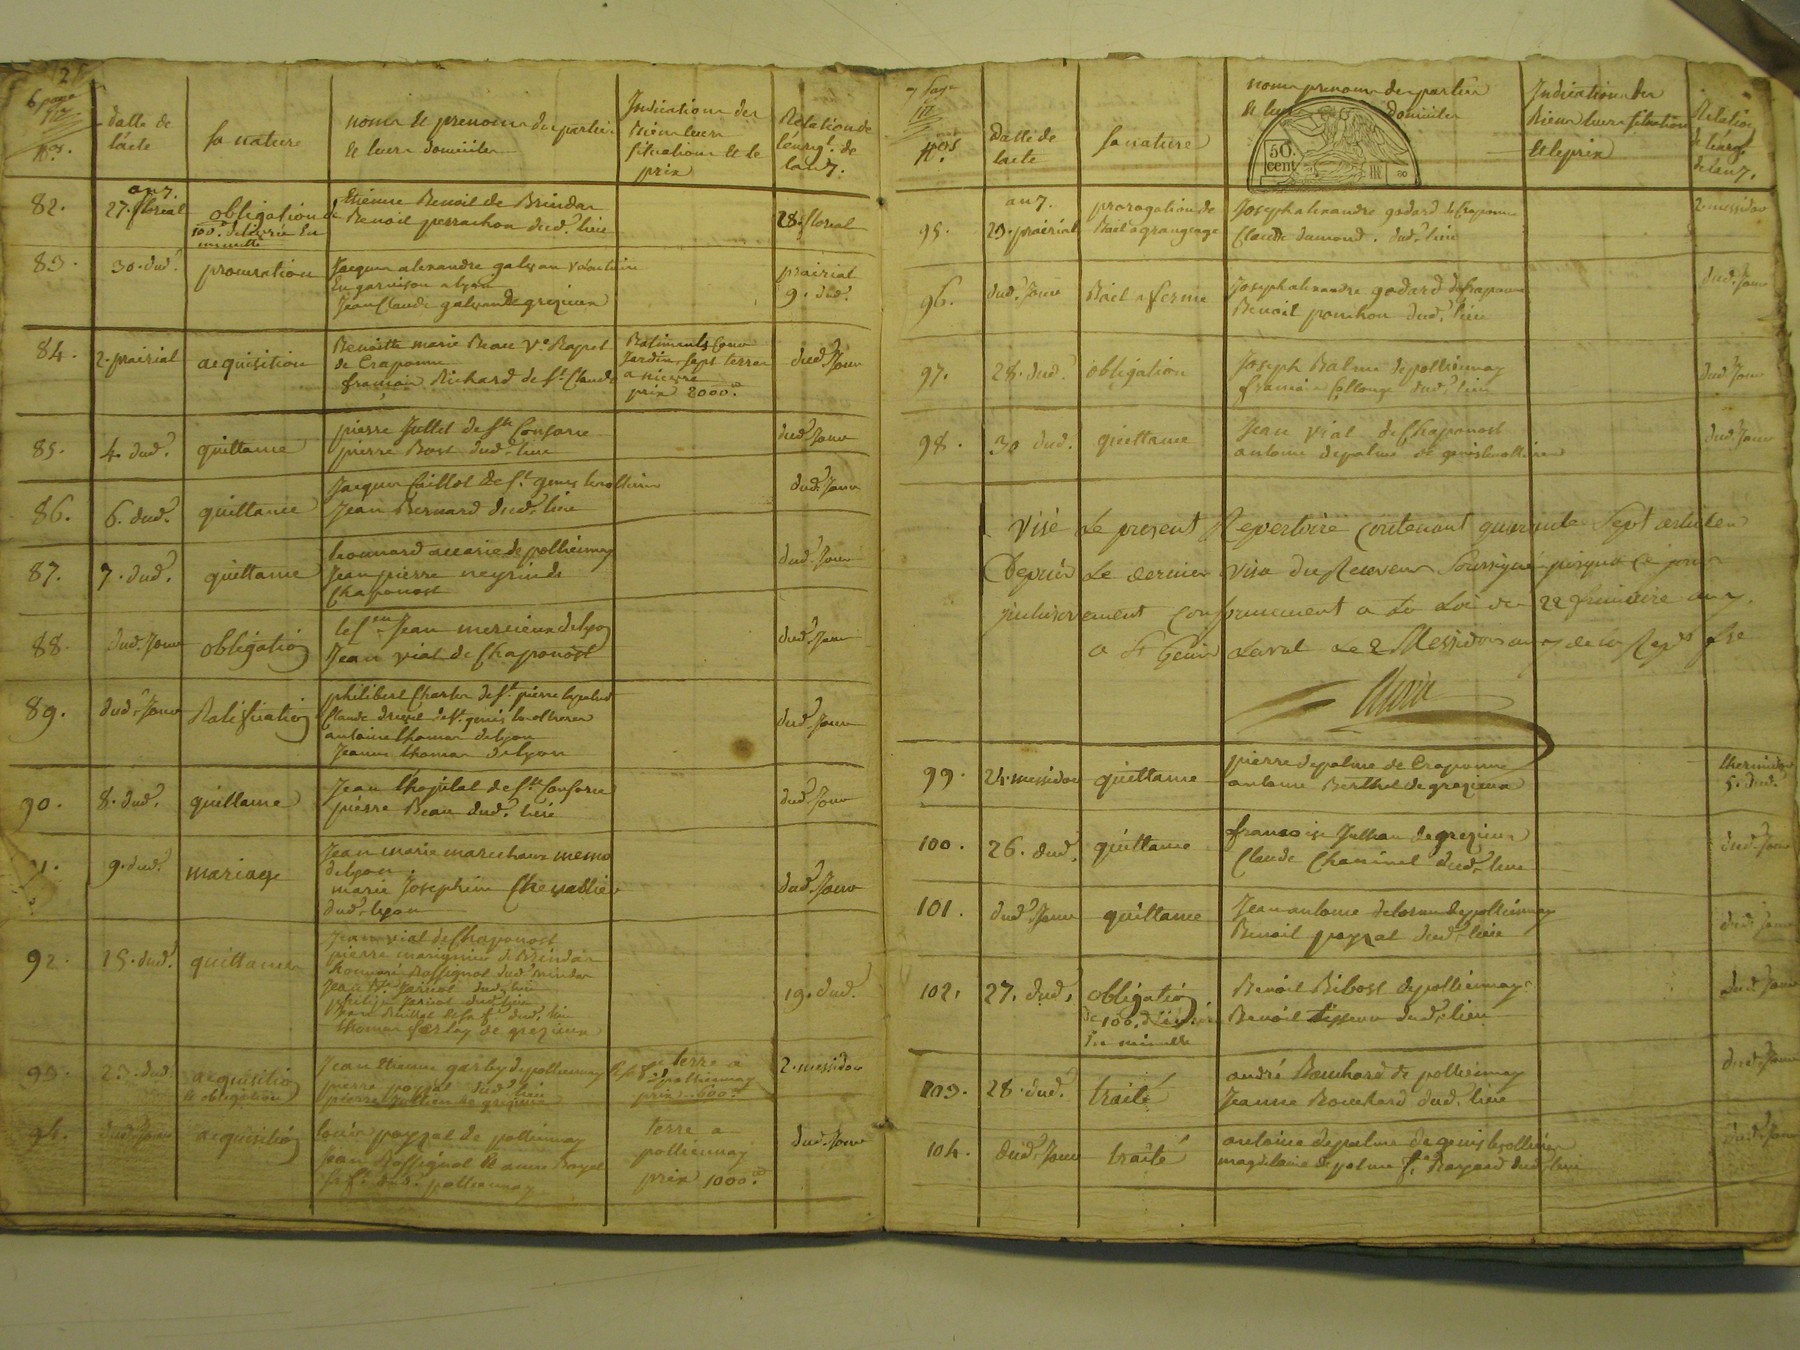 2
6 page
Datte de
l'acte
Sa nature
noms et prenoms des parties
et leurs domiciles
Indications des
Biens leurs
situations et le
prix
Relation de
l'enrgt. de
l'an 7.
nos.
82.
an 7.
27. floreal
obligation de
100# delivrée En
minutte
Etienne Benoit de Brindas
Benoit perrachon dud. lieu
28. floreal
83.
30. dud.
procuration
Jacques alexandre galvan volontaire
En garnison a lyon
Jean Claude galvan de grezieux
prairial
9. dud.
84.
2. prairial
acquisition
Benoitte marie Beau Ve. Rapet
de Craponne
françois Richard de St. Claude
Batiments Cour
Jardin, sept terres
prix 2000#.
dud. Jour
85.
4. dud.
quittance
pierre Jullet de Ste Consorce
pierre Bost dud. lieu
dud. Jour
86.
6. dud.
quittance
Jacques Caillot de St. genis les ollieres
Jean Bernard dud. lieu
dud. Jour
87.
7. dud.
quittance
leonnard de pollionnay
Jean pierre neyrin de
Chaponost
dud. Jour
88.
dud. Jour
obligation
Jean mercieux de lyon
Jean vial de Chaponost
dud. Jour
89.
dud. Jour
Ratification
philibert Charton de St. pierre lapalud
Claude de St. genis les ollieres
antoine thomas de lyon
Jeanne thomas de lyon
dud. Jour
90.
8. dud.
quittance
Jean l'hopital de Ste Consorce
pierre Beau dud. lieu
dud. Jour
9. dud.
mariage
Jean marie marechaux
de lyon.
marie Josephine Chevallier
dud. lyon
dud. Jour
92.
15. dud.
quittances
Jean vial de Chaponost
pierre marignier de Brindas
Rossignol dud. Brindas
Jean Bte. Jaricot dud. lieu
philip Jaricot dud. lieu
dud. lieu
thomas de grezieux
19. dud.
93.
23. dud.
acquisition
et obligation
Jean Etienne de pollionnay
pierre poyzat dud. lieu
pierre de grezieux
terre a
pollionnay
prix 600#.
2. messidor
94.
dud. Jour
acquisition
louis poyzat de pollionnay
Jean Rossignol et anne Bayet
sa fe. dud. pollionnay
terre a
pollionnay
prix 1000#.
dud. Jour
7 page
nos.
Datte de
l'acte
Sa nature
noms prenoms des parties
et leurs domiciles
50.
cent
Indication des
Biens leurs situations
Et le prix
Relation
de l'enrgt.
de l'an 7.
95.
an 7.
29. prairial
prorogation de
Bail a grangeage
Joseph alexandre godard de Craponne
Claude dumond. dud. lieu
2. messidor
96.
dud. Jour
Bail a ferme
Joseph alexandre godard de Craponne
Benoit ponchon dud. lieu
dud. Jour
97.
28. dud.
obligation
Joseph Balme de pollionnay
françois Collonge dud. lieu
dud. Jour
98.
30 dud.
quittance
Jean vial de Chaponost
antoine depalme de genis les ollieres
dud. Jour
Visé le present Repertoire contenant quarante sept articles
Depuis le dernier visa du Receveur soussigné jusqu'a ce jour
inclusivement conformement a la loi du 22 frimaire an 7.
a St Genis Laval le 2 Messidor an 7 de la Repe fse
99.
24. messidor
quittance
pierre depalme de Craponne
antoine Berthet de grezieux
thermidor
5. dud.
100.
26. dud.
quittance
françoise Julhan de grezieux
Claude dud. lieu
dud. Jour
101.
dud. Jour
quittance
Jean antoine delorme de pollionnay
Benoit poyzat dud. lieu
dud. Jour
102.
27. dud.
obligation
de 100#. deliv.
En minutte
Benoit Ribost de pollionnay
Benoit tisseur dud. lieu
dud. Jour
103.
28. dud.
traité
andré Bouchard de pollionnay
Jeanne Bouchard dud. lieu
dud. Jour
104.
dud. Jour
traité
antoine depalme de genis les ollieres
magdelaine depalme fe. Bayard dud. lieu
dud. Jour